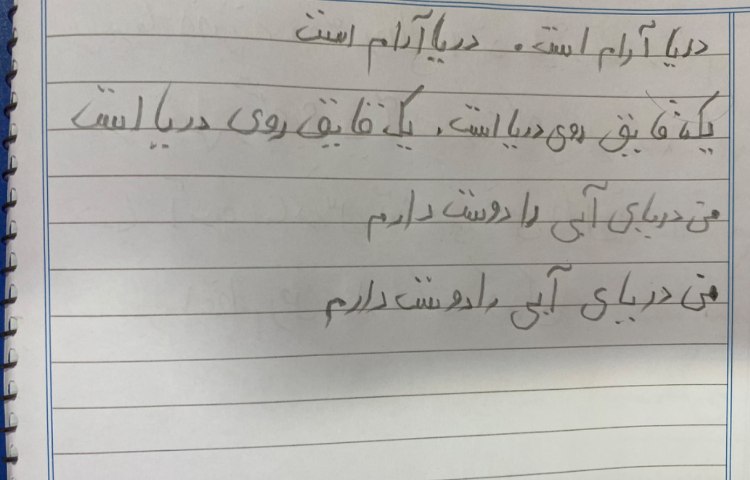 دریا آرام است. دریا آرام است
یک قایق روی دریا است. یک قایق روی دریا است
من دریای آبی را دوست دارم
من دریای آبی را دوست دارم